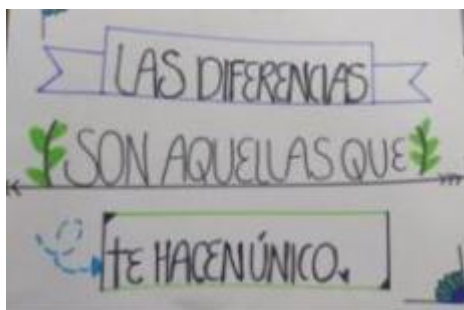 LAS DIFERENCIAS
SON AQUELLAS QUE
TE HACEN ÚNICO.